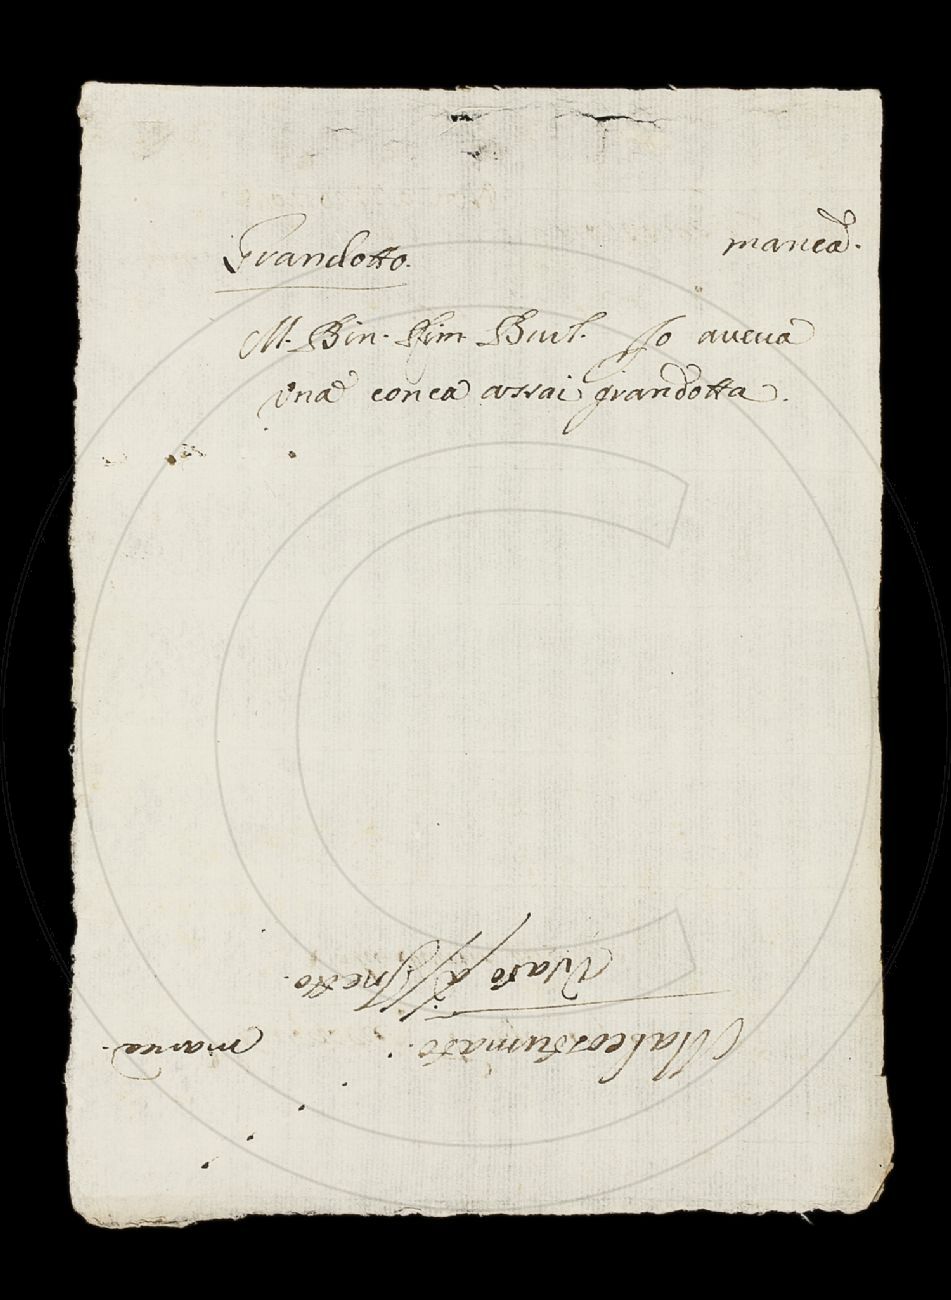 Grandotto. manca.
M. Bin. Rim. Burl. Io aueua
vna conca assai grandotta.
Malcostumato. manca.
Vsato a